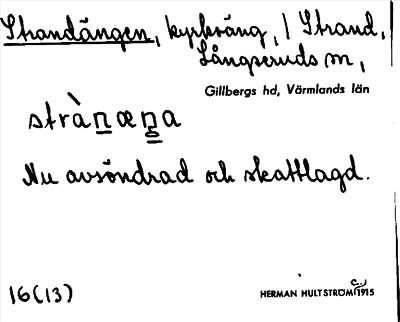 Strandängen, kyrkväng, / Strand,
Långseruds sn,
Gillbergs hd, Värmlands län
strànæna
Nu avsöndrad och skattlagd.
16(13)
HERMAN HULTSTRÖM 1915